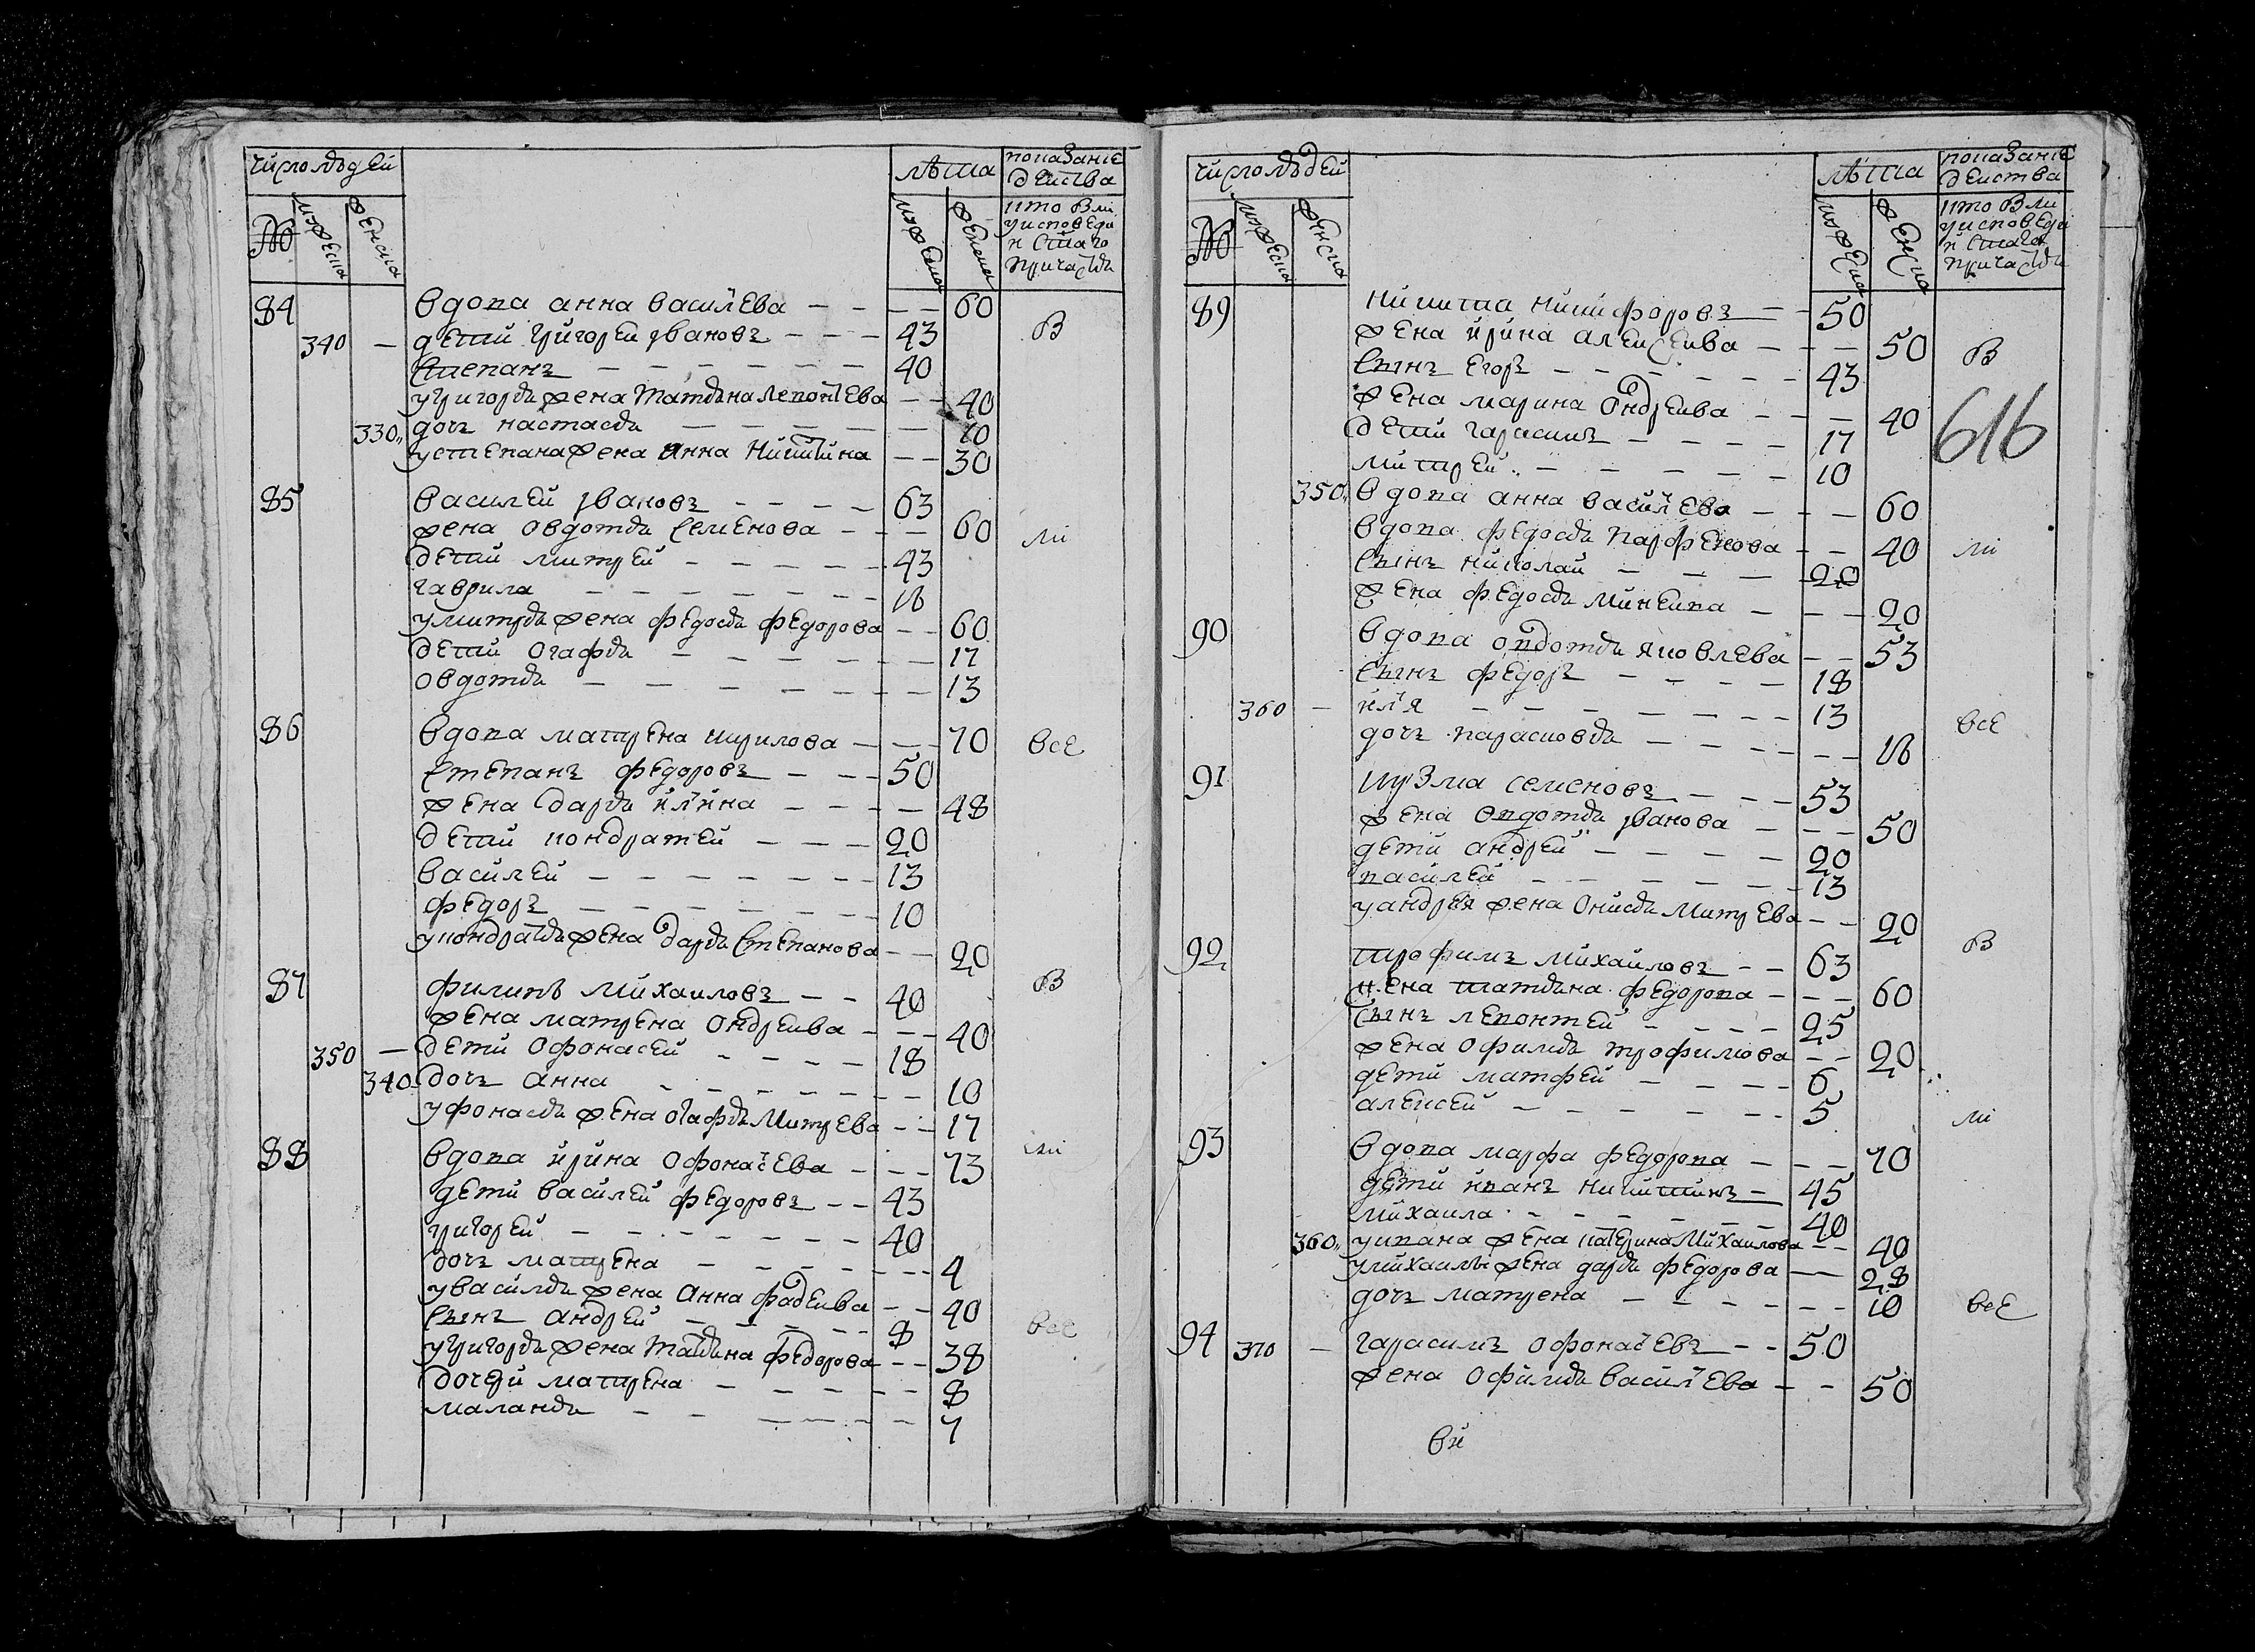 число людей
лѣта
показание действа
№ мужеска женска
мужеска женска
кто был
у исповеди
и стаго
причастия
84 вдова анна василева — — 60
340 — дети григореи ивановъ — — — 43 В
степанъ — — — 40
у григоря жена татьяна леонтева — — 40
330 дочь настася — — — 10
у степана жена анна никитина — — 30
85 василей ивановъ — — — 63
жена овдотья семенова — — 60 ли
дети митрей — — — 43
гаврила — — — 16
у митря жена федося федорова — — 60
дети огафья — — — 17
овдотья — — — 13
86 вдова матрена кирилова — — 70 все
степанъ федоровъ — — — 50
жена дарья илина — — — 48
дети кондратей — — — 20
василей — — — 13
федоръ — — — 10
у кондратья жена дарья степанова — — 20
87 филипъ михаиловъ — — 40 В
жена матрена ондреива — — 40
350 — дети офонасей — — — 18
340 дочь анна — — — 10
у фонася жена огафья митрева — — 17
88 вдова ирина офонасева — — 73 ли
дети василей федоровъ — — 43
григорей — — — 40
дочь матрена — — — 4
у василья жена анна фадеива — — 40
сынъ андрей — — — 8 все
у григоря жена татьяна федорова — — 38
дочери матрена — — — 8
маланья — — — 7
число людей
лѣта
показание действа
№ мужеска женска
мужеска женска
кто был
у исповеди
и стаго
причастия
89 никита никифоровъ — — 50
жена ирина алексеива — — 50 В
сынъ егоръ — — — 43
жена марина ондреива — — 40
616
дети гарасимъ — — — 17
митрей — — — 10
350 вдова анна василева — — 60
вдова федося парфенова — — 40 ли
сынъ николай — — — 20
жена федося минеива — — 20
90 вдова овдотья яковлева — — 53
сынъ федоръ — — — 18
360 — иля — — — 13 все
дочь парасковья — — — 16
91 кузма семеновъ — — — 53
жена овдотья иванова — — 50
дети андрей — — — 20
василей — — — 13
у андрея жена онися митрева — — 20
92 трофимъ михаиловъ — — 63 В
жена татьяна федорова — — 60
сынъ леонтей — — — 25
жена офимья трофимова — — 20
дети матфей — — — 6
алексей — — — 5
93 вдова марфа федорова — — 70 ли
дети иванъ никитинъ — 45
михаила — — — 40
360 у ивана жена катерина михаилова — — 40
у михаилы жена дарья федорова — — 28
дочь матрена — — — 10 все
94 370 — гарасимъ офонасевъ — — 50
жена офимья василева — — 50
ви